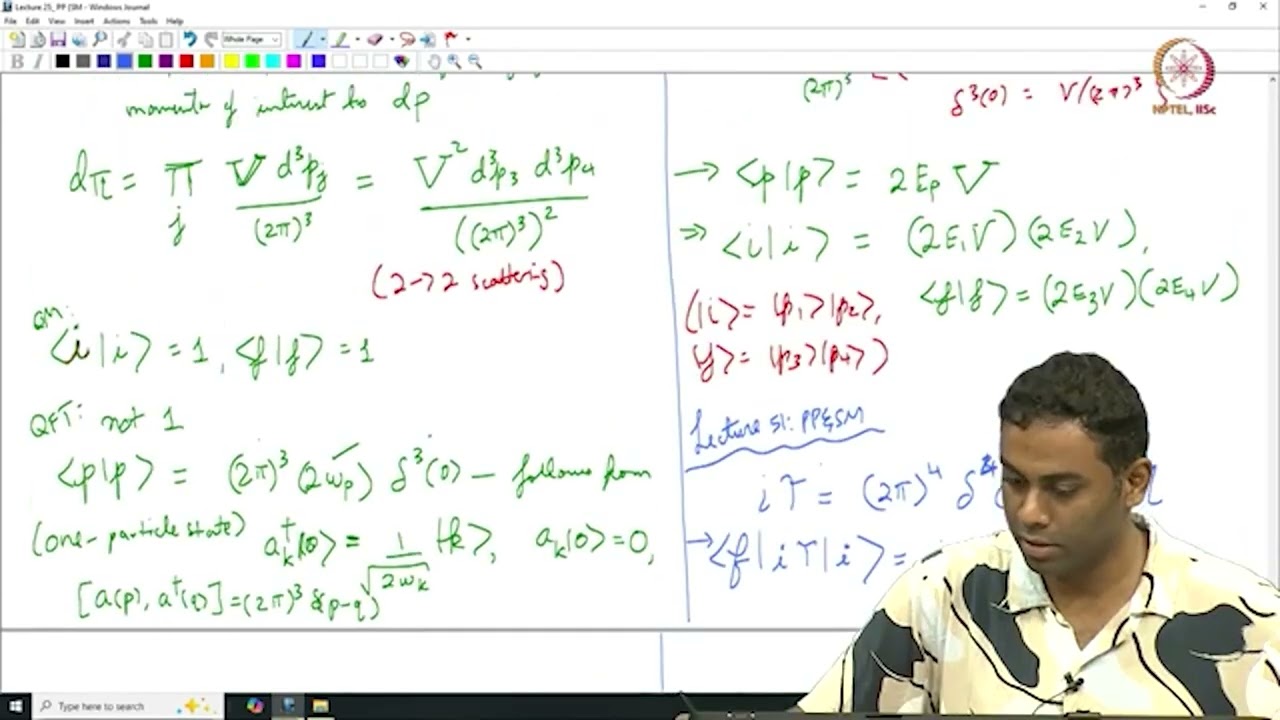 Lecture 25_ PP (SM - Windows Journal
File Edit View Insert Actions Tools Help
Whole Page
B I
momenta of interest to dp
dπ = π_j V d³p_j / (2π)³ = V² d³p₃ d³p₄ / ((2π)³)²
(2→2 scattering)
QM:
⟨i|i⟩ = 1, ⟨f|f⟩ = 1
QFT: not 1
⟨p|p⟩ = (2π)³ (2ω_p) δ³(0) — follows from
(one-particle state) a†_k|0⟩ = 1/√(2ω_k) |k⟩, a_k|0⟩ = 0,
[a(p), a†(q)] = (2π)³ δ(p-q)
(2π)³
δ³(0) = V/(2π)³
NPTEL, IISc
→ ⟨p|p⟩ = 2E_p V
⇒ ⟨i|i⟩ = (2E₁V)(2E₂V),
(|i⟩ = |p₁⟩|p₂⟩, ⟨f|f⟩ = (2E₃V)(2E₄V)
|f⟩ = |p₃⟩|p₄⟩)
Lecture 51: PP&SM
iT = (2π)⁴ δ⁴
→ ⟨f|iT|i⟩ =
Type here to search